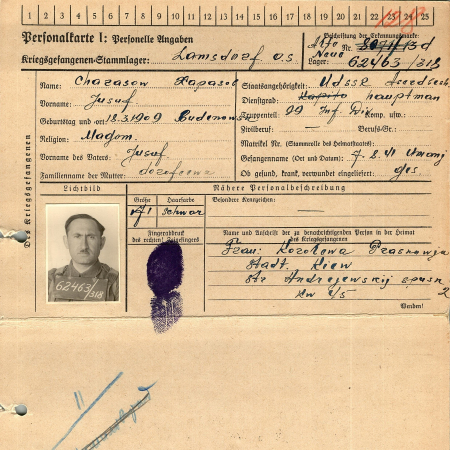 1 2 3 4 5 6 7 8 9 10 11 12 13 14 15 16 17 18 19 20 21 22 23 24 25
Personalkarte I: Personelle Angaben
Kriegsgefangenen-Stammlager: Lamsdorf O.S.
Beschriftung der Erkennungsmarke:
Nr.
Lager: 62463/318
Des Kriegsgefangenen
Name: Charasow
Vorname: Jusuf
Geburtstag und -ort 18.3.1909
Religion: Magom.
Vorname des Vaters: Jusuf
Familienname der Mutter:
Staatsangehörigkeit: UdSSR
Dienstgrad: hauptman
Truppenteil: 99 Inf. Div. Komp. usw.:
Zivilberuf: — Berufs-Gr.:
Matrikel Nr. (Stammrolle des Heimatstaates): —
Gefangennahme (Ort und Datum): 7.8.41
Ob gesund, krank, verwundet eingeliefert: ges
Lichtbild
Nähere Personalbeschreibung
Größe Haarfarbe Besondere Kennzeichen:
schwar —
Fingerabdruck
des rechten! Zeigefingers
Name und Anschrift der zu benachrichtigenden Person in der Heimat
des Kriegsgefangenen
Frau:
Stadt. Kiew
Str Andrejewskij spusn 2
kw 4/5
Wenden!
62463
318